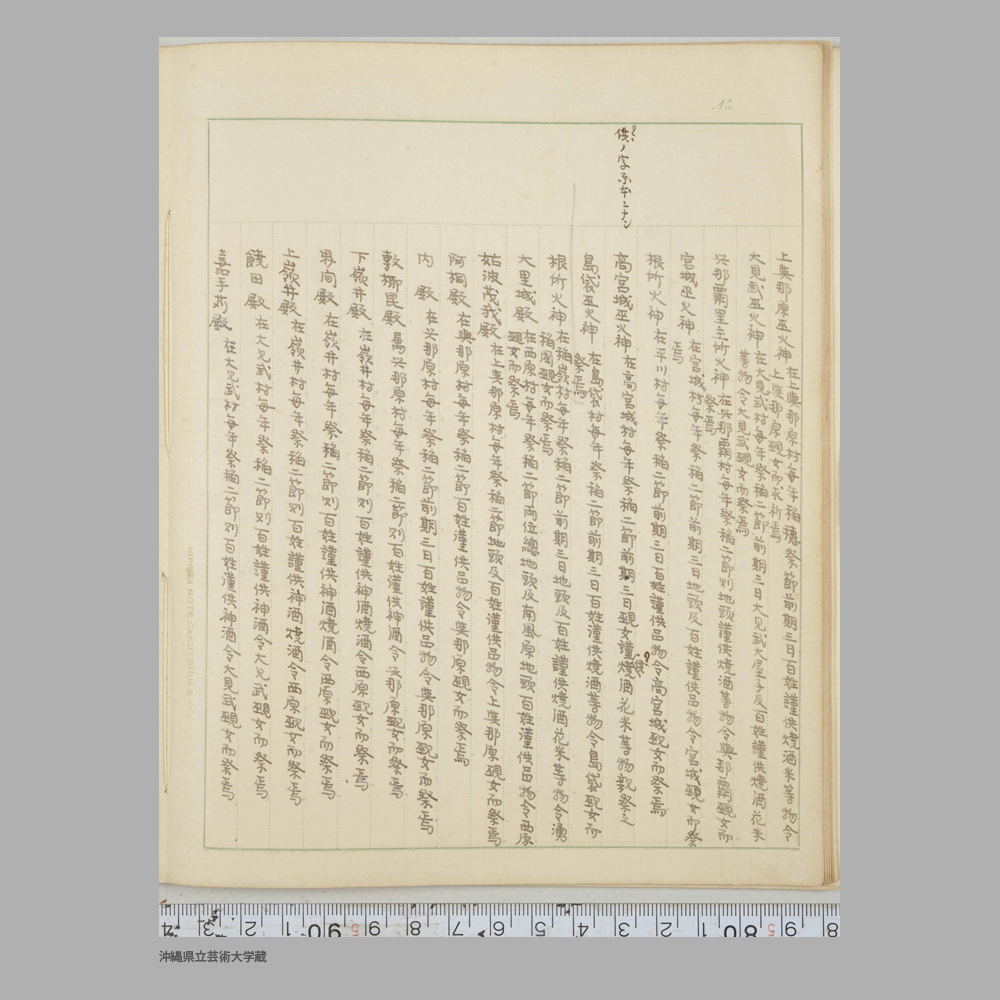 供ノ字原本ニナシ
上與那原巫火神 在上與那原村毎年稲穂祭節前期三日百姓謹供焼酒米等物令
上與那原覡女而求祈焉
大見武巫火神 在大見武村毎年祭稲二節前期三日大見武大屋子及百姓謹供焼酒花米
等物令大見武覡女而祭焉
與那覇里主所火神 在與那覇村毎年祭稲二節則地頭謹供焼酒等物令與那覇覡女而
祭焉
宮城巫火神 在宮城村毎年祭稲二節前期三日地頭及百姓謹供品物令宮城覡女而祭
焉
根所火神 在平川村毎年祭稲二節前期三日百姓謹供品物令高宮城覡女而祭焉
高宮城巫火神 在高宮城村毎年祭稲二節前期三日覡女謹供焼酒花米等物親祭之
島袋巫火神 在島袋村毎年祭稲二節前期三日百姓謹供焼酒等物令島袋覡女而
祭焉
根所火神 在稲嶺村毎年祭稲二節前期三日地頭及百姓謹供焼酒花米等物令湧
稲国覡女而祭焉
大里城殿 在西原村毎年祭稲二節両位總地頭及南風原地頭百姓謹供品物令西原
覡女而祭焉
姑波茂我殿 在上與那原村毎年祭稲二節地頭及百姓謹供品物令上與那原覡女而祭焉
阿楓殿 在與那原村毎年祭稲二節百姓謹供品物令與那原覡女而祭焉
内 殿 在與那原村毎年祭稲二節百姓謹供品物令與那原覡女而祭焉
敷御昆殿 属與那原村毎年祭稲二節則百姓謹供神酒令與那原覡女而祭焉
下嶺井殿 在嶺井村毎年祭稲二節則百姓謹供神酒焼酒令西原覡女而祭焉
男向殿 在嶺井村毎年祭稲二節則百姓謹供神酒焼酒令西原覡女而祭焉
上嶺井殿 在嶺井村毎年祭稲二節則百姓謹供神酒焼酒令西原覡女而祭焉
饒田殿 在大見武村毎年祭稲二節則百姓謹供神酒令大見武覡女而祭焉
嘉手苅殿 在大見武村毎年祭稲二節則百姓謹供神酒令大見武覡女而祭焉
沖縄県立芸術大学蔵